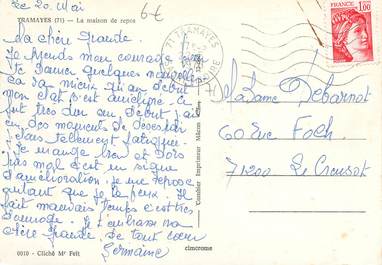 Le 20. Mai
6€
TRAMAYES (71) - La maison de repos
Ma chère grande
Je prends mon courage
te donner quelques nouvelles
ça va mieux qu'au début
mon état s'est amélioré. ça
fut très dur au début j'ai
eu des moments de désespoir
j'étais tellement fatiguée.
je mange bien et dors
pas mal c'est un signe
d'amélioration, je me repose
autant que je le peux. Il
fait mauvais temps c'est très
dommage. Je t'embrasse ma
chère grande de tout cœur
Germaine
0010 - Cliché Mr Feit
71 TRAMAYES
FRANCE
1,00
Combier Imprimeur Mâcon
cimcrome
Madame Debarnot
60 rue Foch
71200 Le Creusot